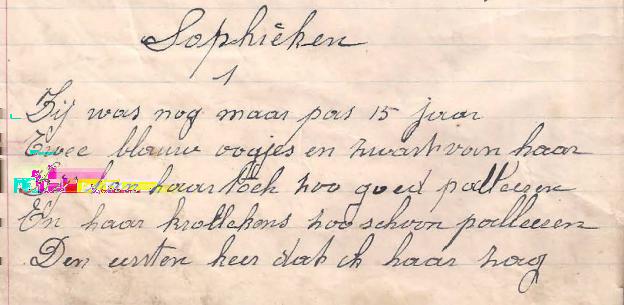 Sophieken
1
Zij was nog maar pas 15 jaar
Twee blauw oogjes en zwart van haar
kon haar toch zoo goed palleeren
En haar krollekens zoo schoon palleeren
Den eersten keer dat ik haar zag